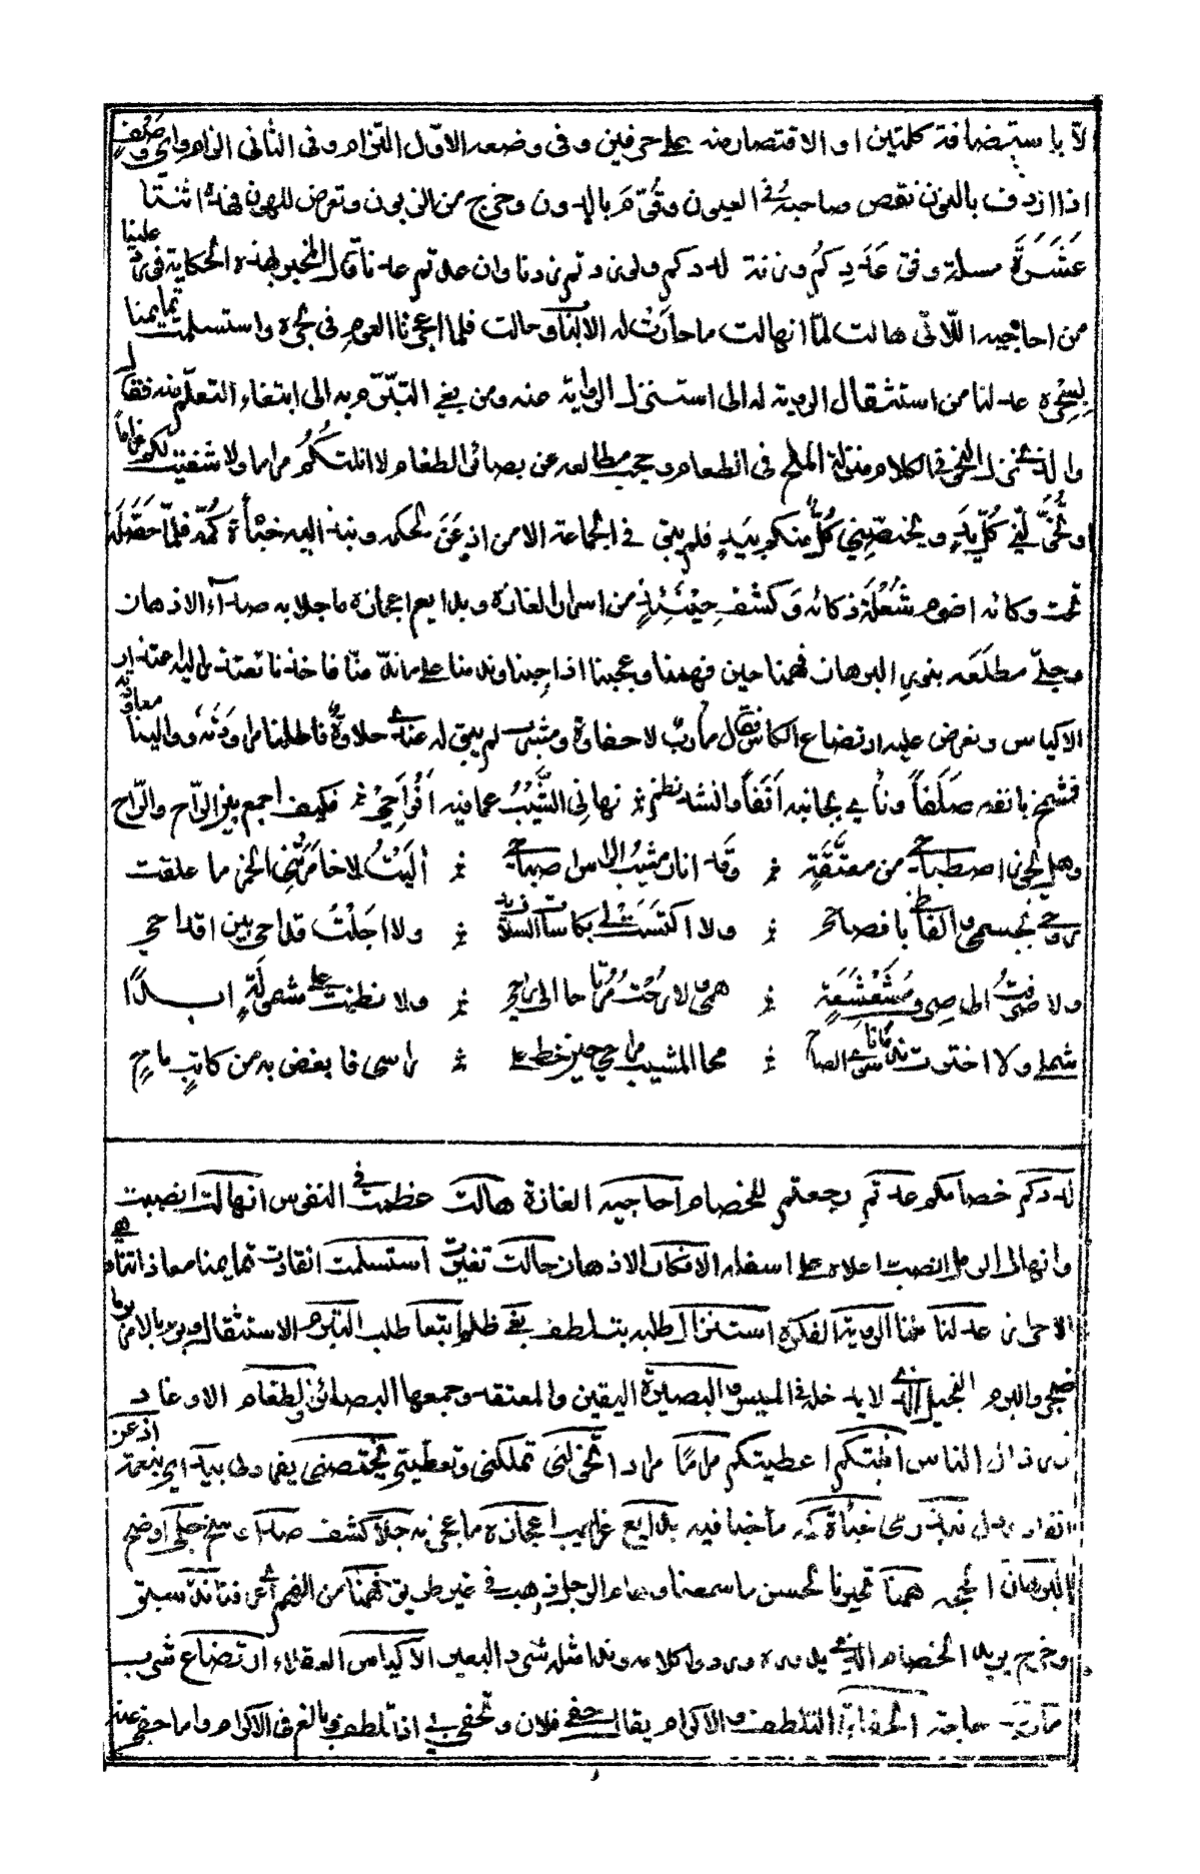 لّا باستضافة كلمتين او الاقتصار منه على حرفين وفى وضعه الاوّل التزام وفى الثانى الزام واى وصف
اذا اردف بالنون نقص صاحبه فى العيون وقُوّم بالدون وخرج من الزبون وتعرض للهون فهذه اثنتا
عَشَرَةَ مسئلة وفق عَدَدِكُم وزنة لددكم ولو زدتم زدنا وان عدتم عدنا قال المخبر بهذه الحكاية فورد علينا
من احاجيه اللاتى هالت لمّا انهالت ما حارت له الافكار وحالت فلما اعجزنا العوم فى بحره واستسلمت تمايمنا
لسحره عدلنا من استثقال الروية له الى استنزال الرواية عنه ومن بغى التبرّم به الى ابتغاء التعلّم منه فقال
والذى نزل النحو فى الكلام منزلة الملح فى الطعام وحجب مطالعه عن بصائر الطغام لا انلتكم مراما ولا شفيت لكم غراما
او تُخَوّلنى كُلُّ يدٍ ويختصّنى كُلٌّ منكم بيدٍ فلم يبق فى الجماعة الا من اذعن لحكمه ونبذ اليه خبأة كمّه فلمّا حصلت
تحت وكائه اضرم شُعْلَة ذكائه وكشف حينئذٍ من اسرار الغازه وبدايع اعجازه ما جلا به صداء الاذهان
وجلّى مطلعه بنور البرهان فهمنا حين فهمنا وعجبنا اذ اجبنا وندمنا على ما ندّ منّا فاخذنا نعتذر اليه اعتذار
الاكياس ونعرض عليه ارتضاع الكاس فقال مأرب لا حفاوة ومشرب لم يبق له عندى حلاوة فاطلنا مراودته ووالينا معاودته
فشمخ بانفه صَلَفاً ونأى بجانبه اَنَفاً وانشد نظم ؞ نهانِى الشَّيْبُ عما فيه اَفْرَاحِى ؞ فكيف اجمع بين الرّاح والرّاح
وهل يجوز اصطباحى من معتّقة ؞ وقد انار مشيب الراس صباحى ؞ اَليَتُ لا خامَرَتْنى الخمر ما علقت
روحى بجسمى والفاظى بافصاحى ؞ ولا اكتست لى بكاسات السلاف يد ؞ ولا اجَلْتُ قداحى بين اقداحى
ولا صرفت الى صرف مُشَعْشَعَة ؞ همى ولا رُحْتُ مُرتاحا الى راحى ؞ ولا نظمت على مشمولةٍ ابداً
شملى ولا اخترت ندمانا سوى الصاحى ؞ محا المشيب مراحى حين خط على ؞ راسى فابغض به من كاتبٍ ماحٍ
لددكم خصامكم عدتم رجعتم للخصام احاجيه الغازه هالت عظمت فى النفوس انهالت انصبت
وانهال الرمل انصب اعلاه على اسفله الافكار الاذهان حالت تغيرت استسلمت انقادت تمايمنا معاذاتنا هى
الاحراز عدلنا ملنا الروية الفكرة استنزال طلبه بتلطف بغى ظلم ابتغا طلب التبرم الاستثقال
ضجر والبرم البخيل الذى لا يدخل فى الميسر البصيرة اليقين والمعتقد وجمعها البصائر لطغام الاوغاد
ورذال الناس انلتكم اعطيتكم مراما مرادا تخولنى تملكنى وتعطينى يختصنى يفردنى بيد اى بنعمة اذعن
انقاد نبذ رمى خبأة كمه ما خبا فيه بدايع غرايب اعجازه ما عجز به جلا كشف صداء وسخ جلى اوضح
البرهان الحجه همنا تحيرنا لحسن ما سمعنا وهام الرجل ذهب فى غير طريق فهمنا من الفهم اى عرفنا ندّ سبق
وخرج يريد الخصام الذى كلامه وند مثله شرد البعير الاكياس العقلاء ارتضاع شرب
مأرب حاجة الحفاوة التلطف والاكرام يقال حفى فلان وتحفى بى اذا تلطف وبالغ فى الاكرام واما حفى عنه